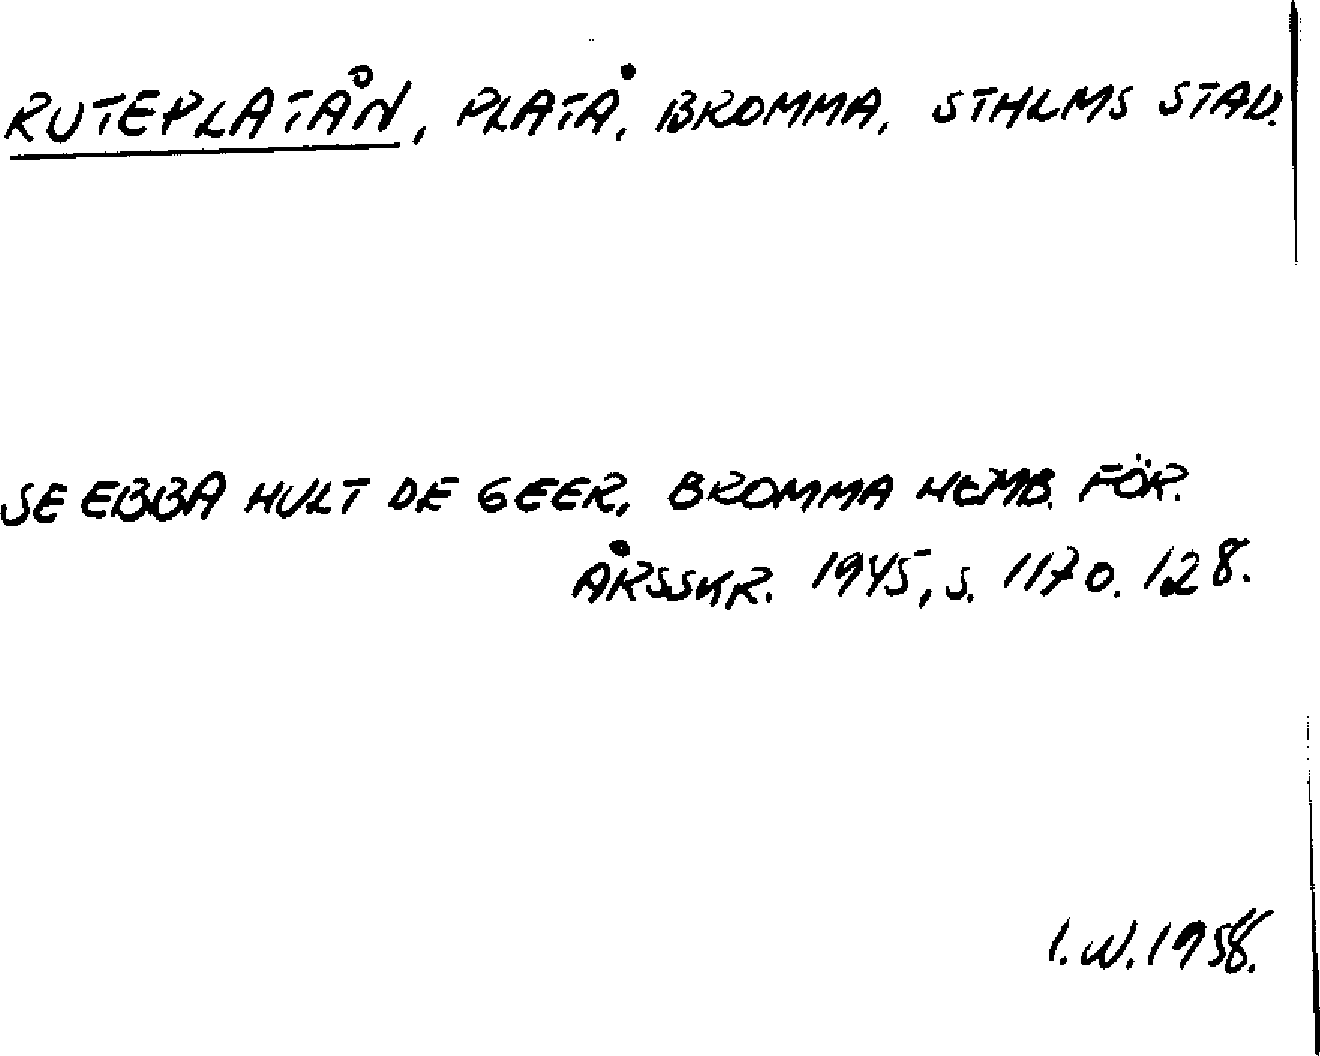 RUTEPLATÅN, PLATÅ, BROMMA, STHLMS STAD.
SE EBBA HULT DE GEER, BROMMA HEMB. FÖR.
ÅRSSKR. 1945, S. 117 O. 128.
I.W. 1958.